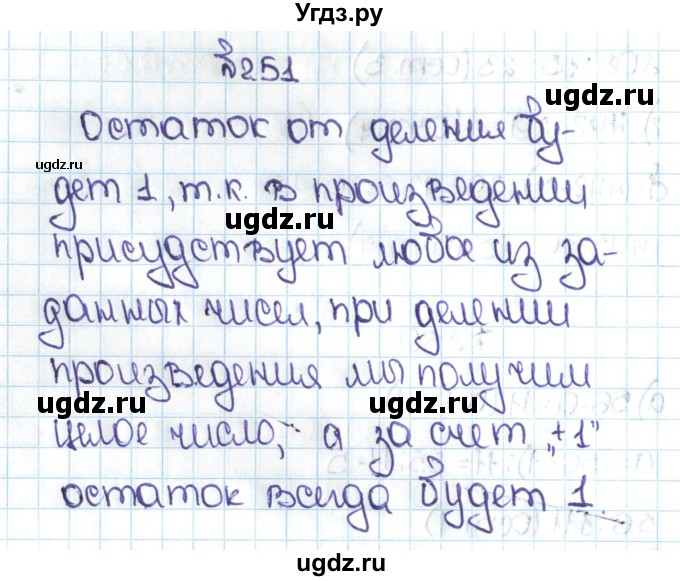 Угдз.ру
№251
Остаток от деления бу-
ugdz.ru
ugdz.ru
дет 1, т.к. в произведении
ugdz.ru
присудствует любое из за-
ugdz.ru
данных чисел, при делении
произведения мы получим
ugdz.ru
ugdz.ru
целое число, а за счет „+1"
остаток всегда будет 1
ugdz.ru
ugdz.ru